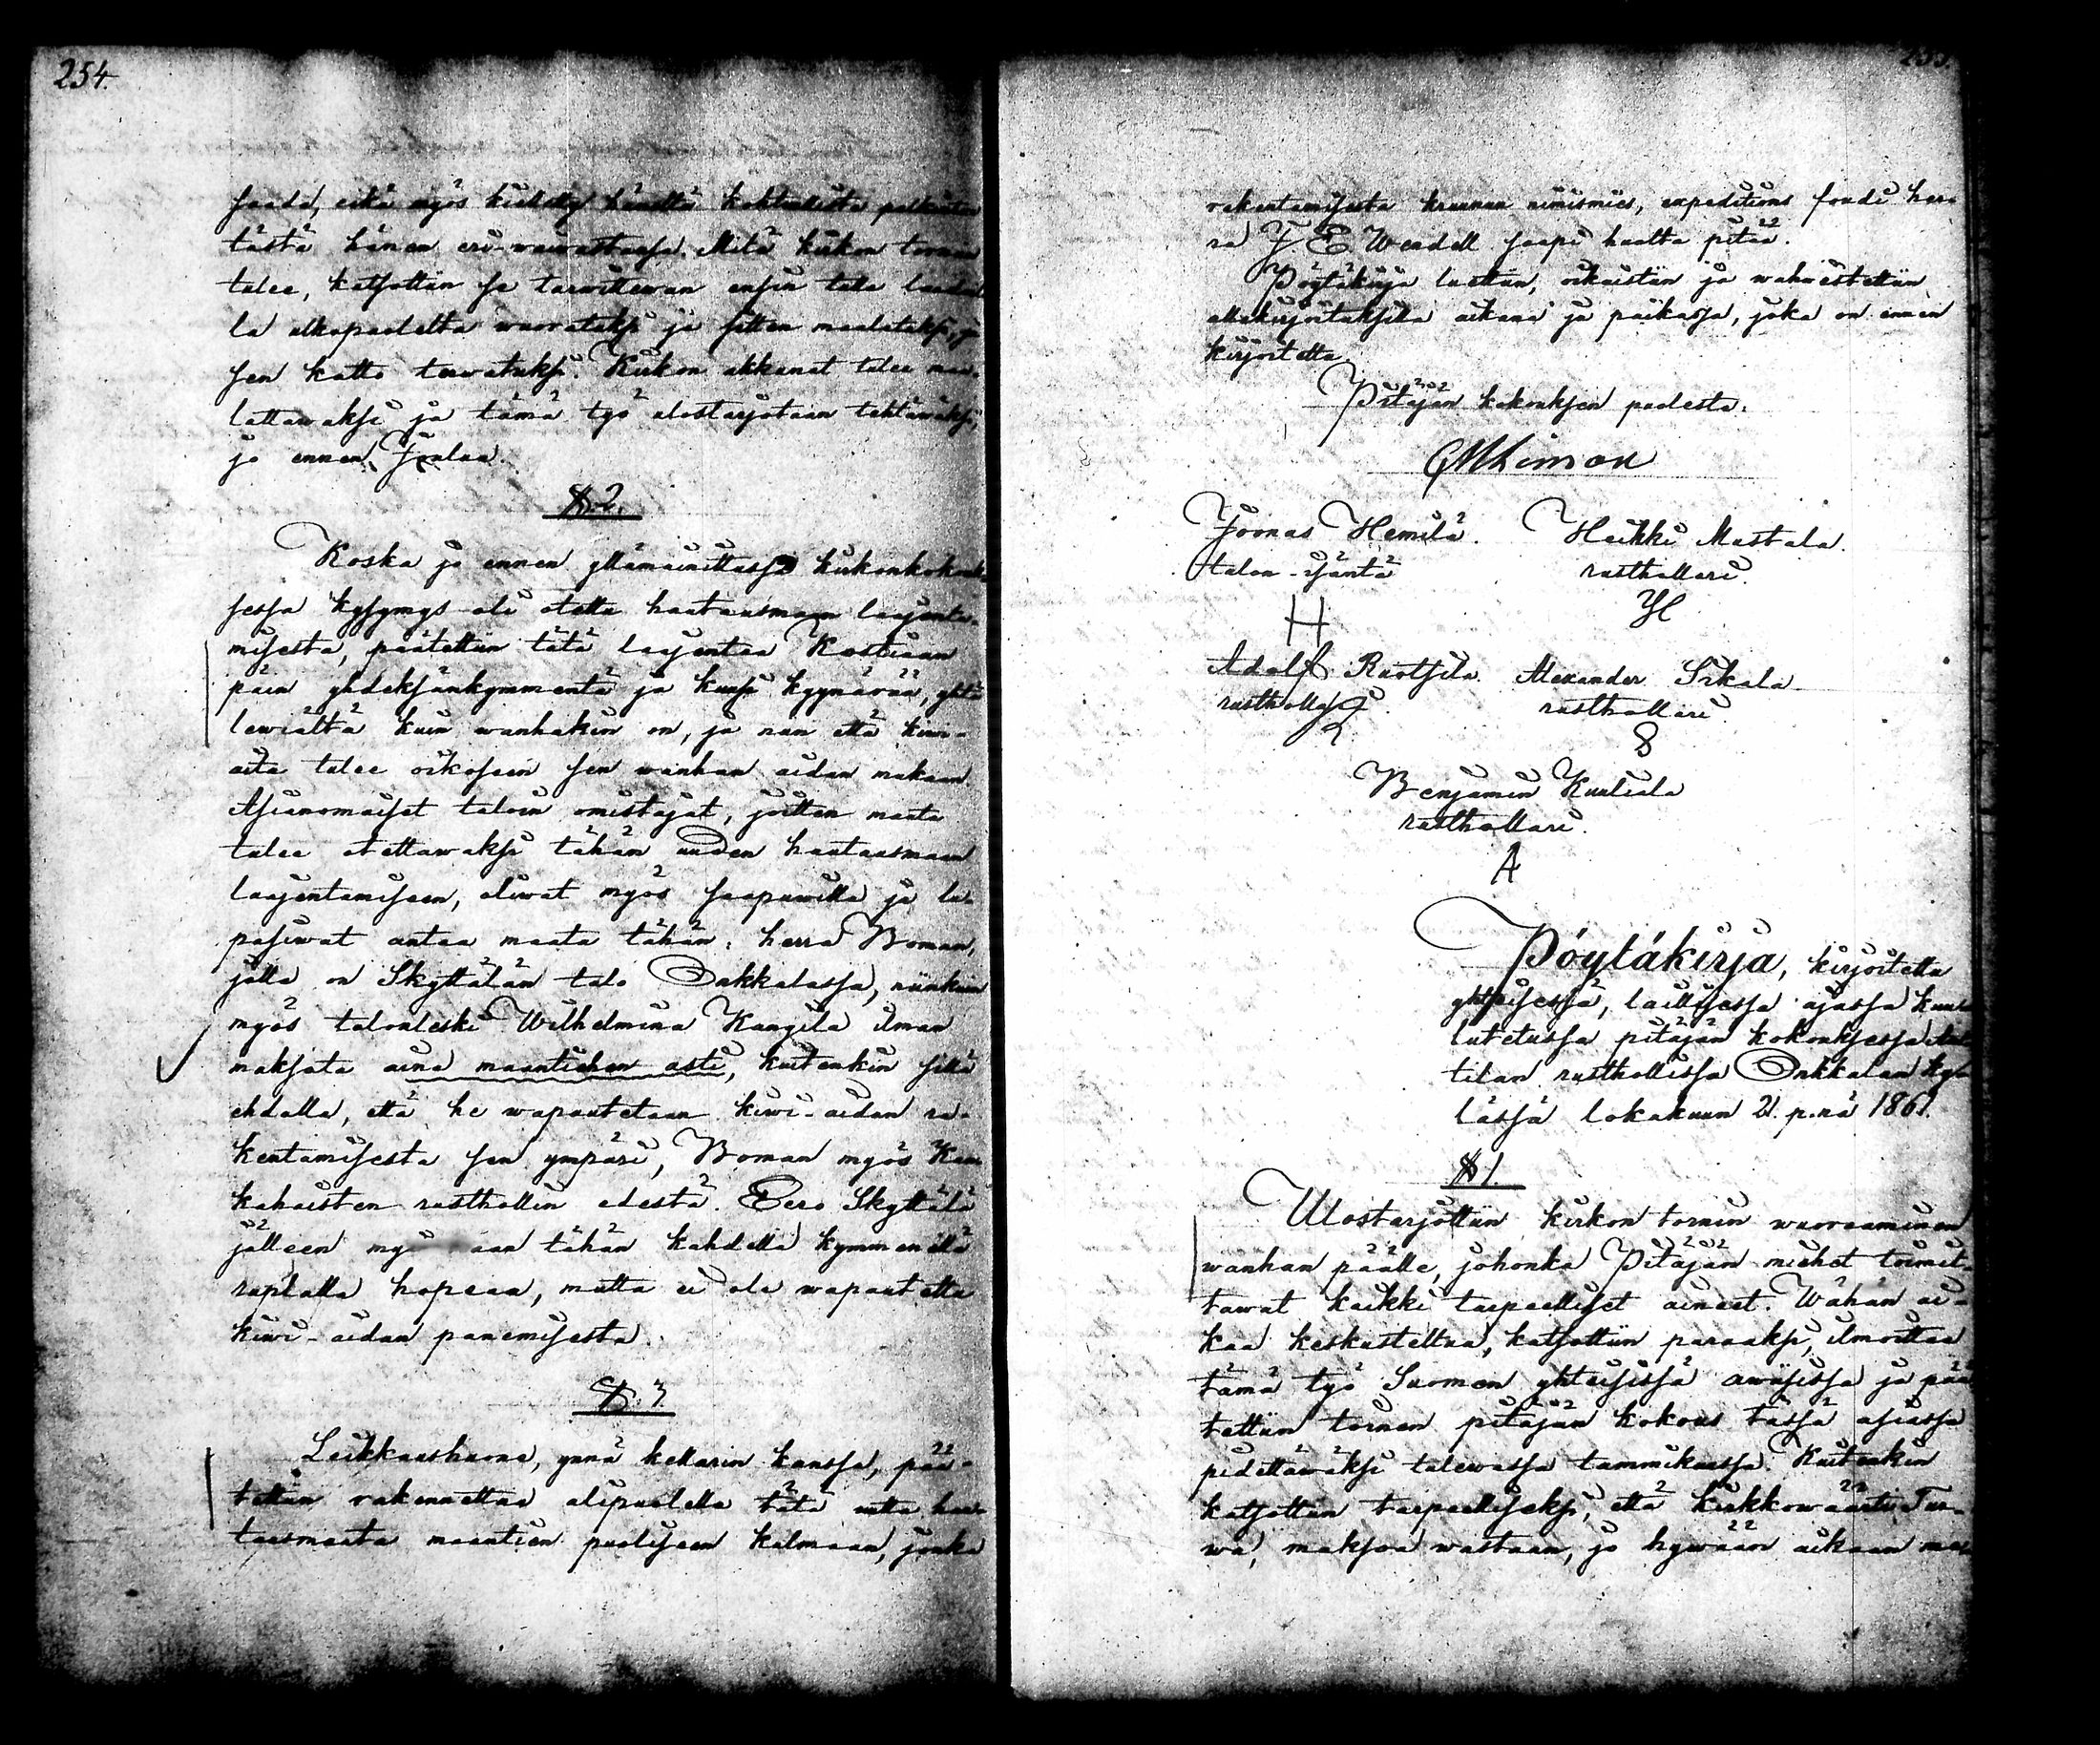 254.
saada, eikä myös kielletty häneltä kohtuulista palkintoa
tästä hänen eri-waiwastansa. Mitä kirkon torniin
tulee, katsottiin se tarwittewan ensin tulla laudal-
la ulkopuolelta wuoratuksi ja sitten maalatuksi, ja
sen katto terwatuksi. Kirkon akkunat tulee maa-
lattawaksi ja tämä työ ulostarjotaan tehtäwäksi,
jo ennen Joulua.
§. 2.
Koska jo ennen yllämainitussa kirkonkokouk-
sessa kysymys oli otettu hautausmaan laajenta-
misesta, päätettiin tätä laajentaa Kostiaan
päin yhdeksänkymmentä ja kuusi kyynärää, yhtä
lewiältä kuin wanhakin on, ja niin että kiwi-
aita tulee oikoseen sen wanhan aidan mukaan.
Asianomaiset taloin omistajat, joitten maata
tulee otettawaksi tähän uuden hautausmaan
laajentamiseen, oliwat myös saapuwilla ja lu-
pasiwat antaa maata tähän: herra Boman,
jolla on Skyttälän talo Onkkalassa, niinkuin
myös talonleski Wilhelmina Kangila ilman
maksota aina maantiehen asti, kuitenkin sillä
ehdolla, että he wapautetaan kiwi-aidan ra-
kentamisesta sen ympäri, Boman myös Kau-
kahaisten rusthollin edestä. Eero Skyttälä
jälleen myö aan tähän kahdella kymmenellä
ruplalla hopeaa, mutta ei ole wapautettu
kiwi-aidan panemisesta.
§. 3.
Leikkaushuone, ynnä kellarin kanssa, pää-
tettiin rakennettaa alipuolella tätä uutta hau-
tausmaata maantien puoliseen kulmaan, jonka
rakentamisesta kruunun nimismies, expeditions fouti her-
ra J E Wendell saapi huolta pitää.
Pöytäkirja luettiin, oikaistiin ja wahwistettiin
allekirjoituksilla aikana ja paikassa, joka on ennen
kirjoitettu.
Pitäjän kokouksen puolesta:
G M Limón
Joonas Hemilä. Heikki Mustala.
talon-isäntä rusthollari.
H H
Adolf Ruotsila. Alexander Sikala
rustholla rusthollari.
8
Benjamin Kuuliala
rusthollari.
A
Pöytäkirja, kirjoitettu
yhteisessä, laillisessa ajassa kuu-
lutetussa pitäjän kokouksessa
tilan rusthollissa Onkkalan ky-
lässä lokakuun 21. p.nä 1861.
§ 1.
Ulostarjottiin kirkon tornin wuoraaminen
wanhan päälle, johonka Pitäjän miehet toimit-
tawat kaikki tarpeelliset aineet. Wähän ai-
kaa keskusteltua, katsottiin paraaksi, ilmoittaa
tämä työ Suomen yhteisissä awiisissa ja pää-
tettiin toinen pitäjän kokous tässä asiassa
pidettäwäksi tulewassa tammikuussa. Kuitenkin
katsottiin tarpeelliseksi, että kirkkowäärti Tur-
wa, maksoa wastaan, jo hywään aikaan